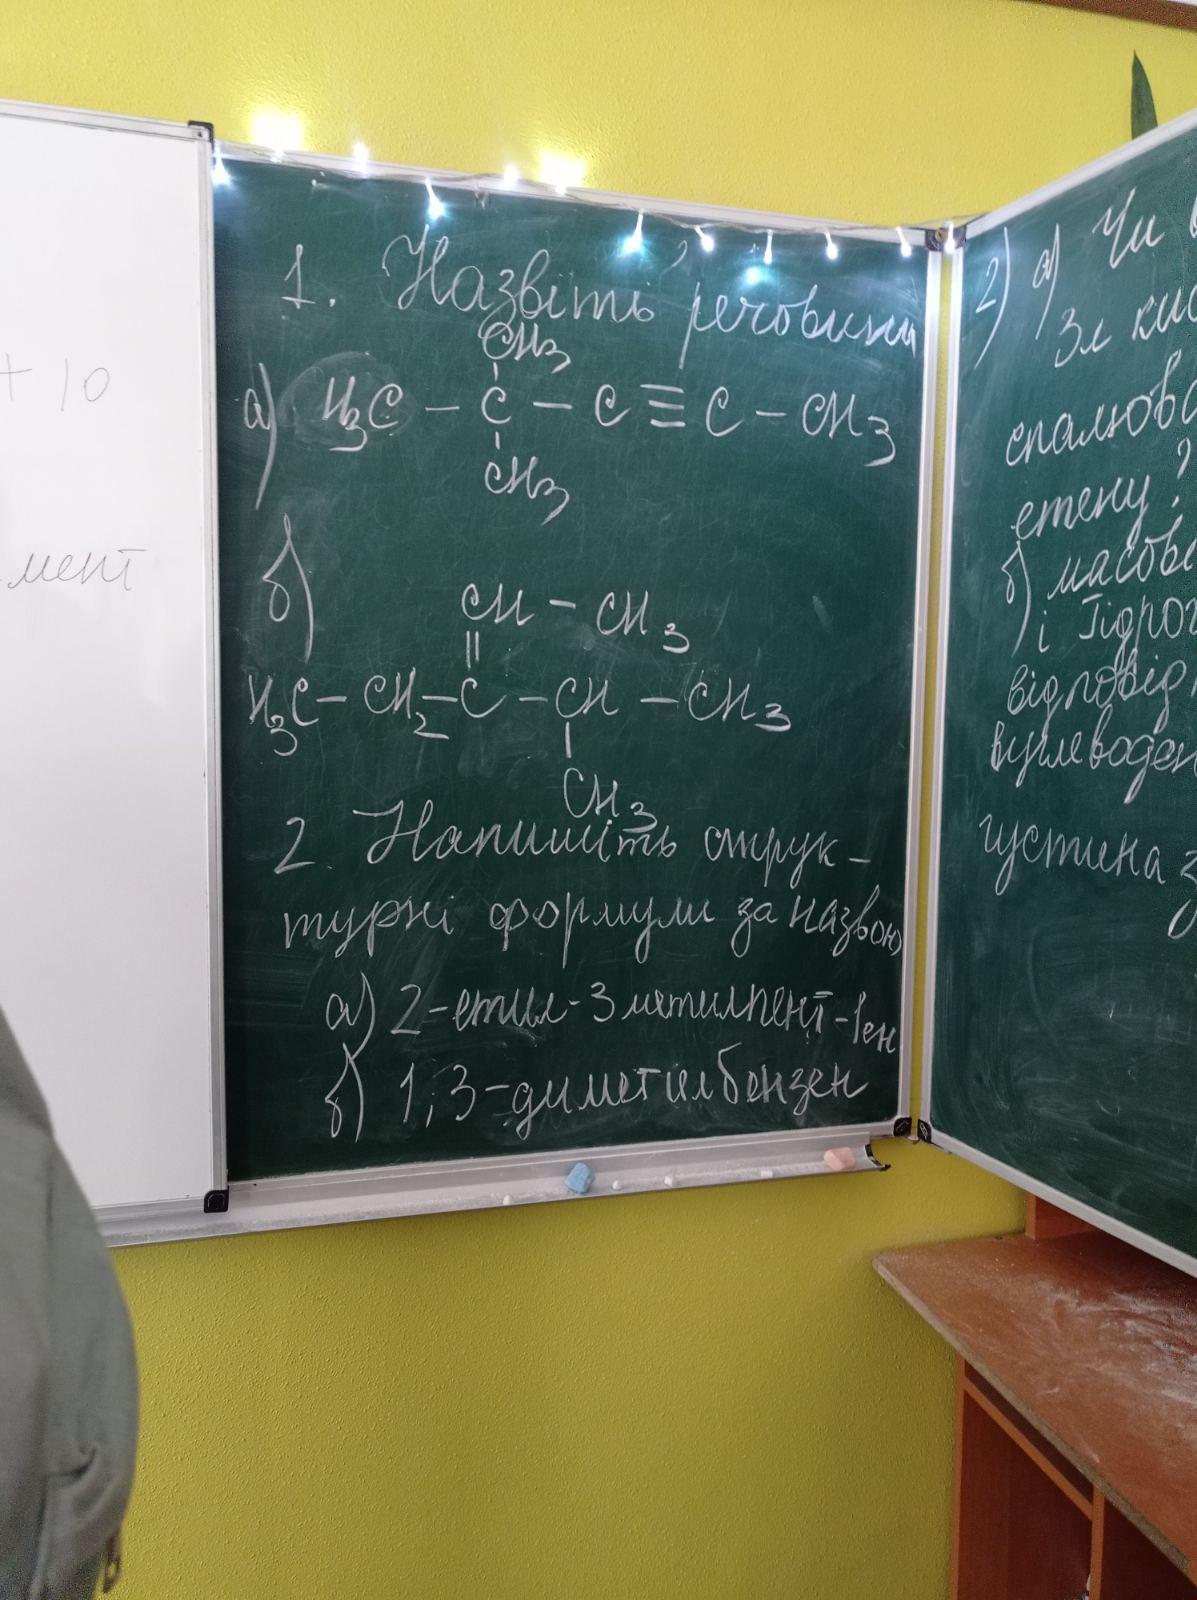 + 10
мент
1. Назвіть речовини
CH3
а) H3C – C – C ≡ C – CH3
CH3
б)
CH – CH3
||
H3C – CH2 – C – CH – CH3
|
CH3
2. Напишіть струк-
турні формули за назвою
а) 2-етил-3метилпент-1ен
б) 1,3-диметилбензен
2) а) Чи
3л
спалюв
етену?
б) масов
і Гідрог
відповід
вуглеводен
густина